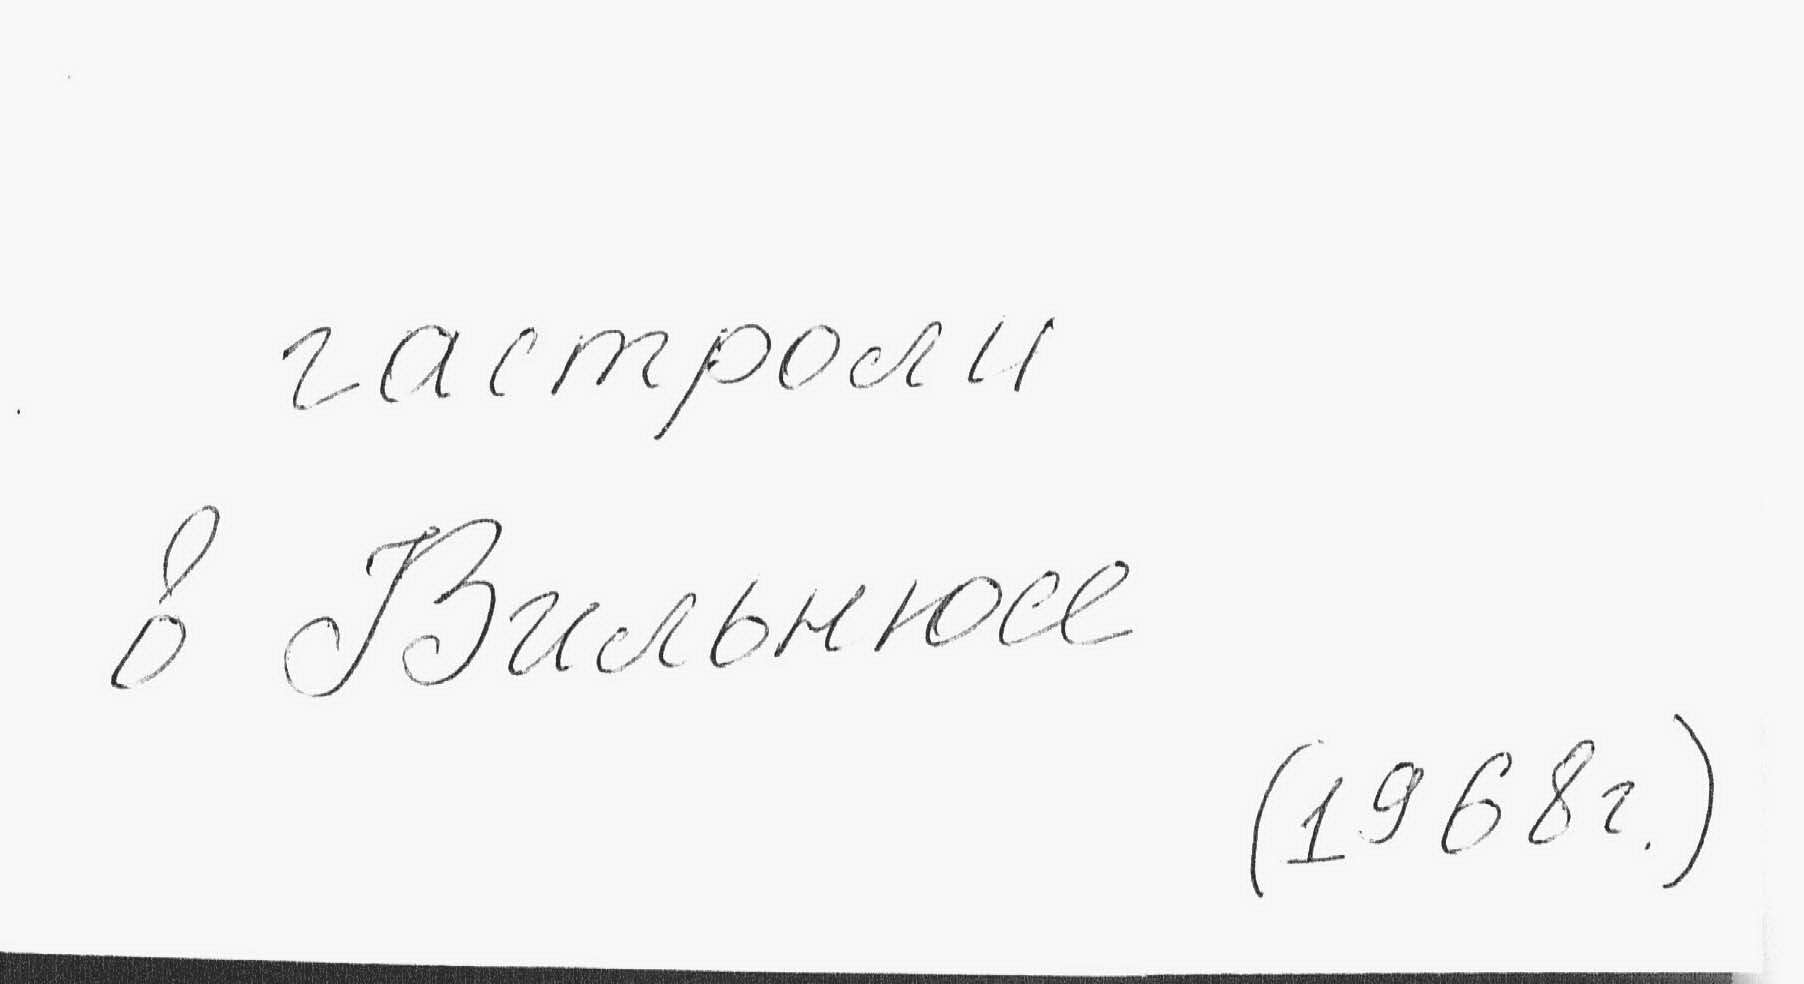 гастроли
в Вильнюсе
(1968г.)